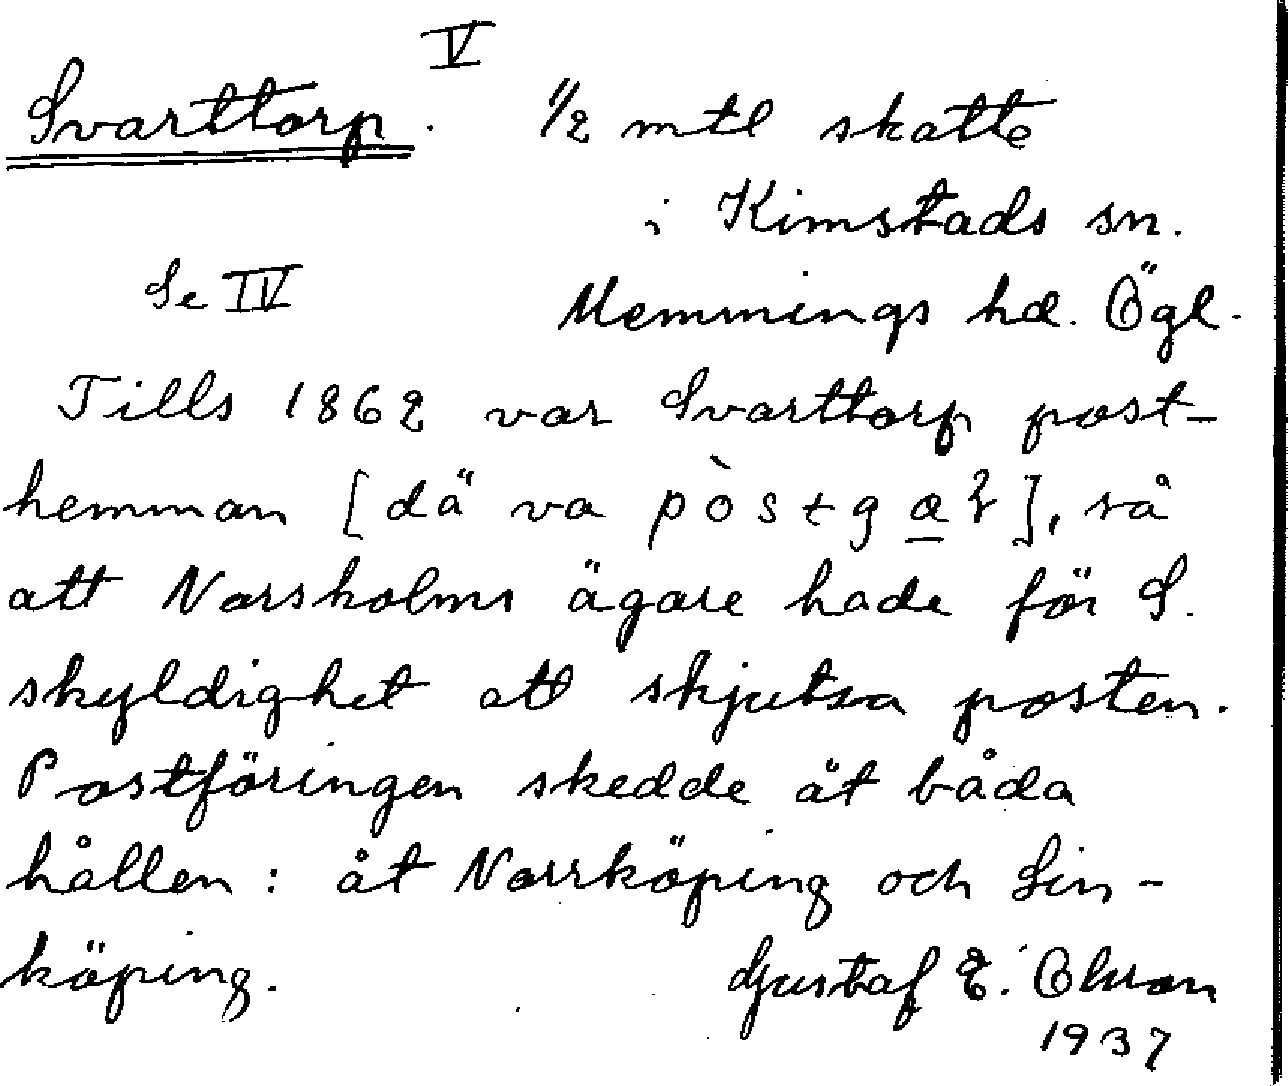 V
Svarttorp. 1/2 mtl skatte
i Kimstads sn.
Se IV Memmings hd. Ögl.
Tills 1862 var Svarttorp post-
hemman [dä va pòstgaʅ], så
att Norsholms ägare hade för S.
skyldighet att skjutsa posten.
Postföringen skedde åt båda
hållen: åt Norrköping och Lin-
köping. Gustaf E. Olsson
1937